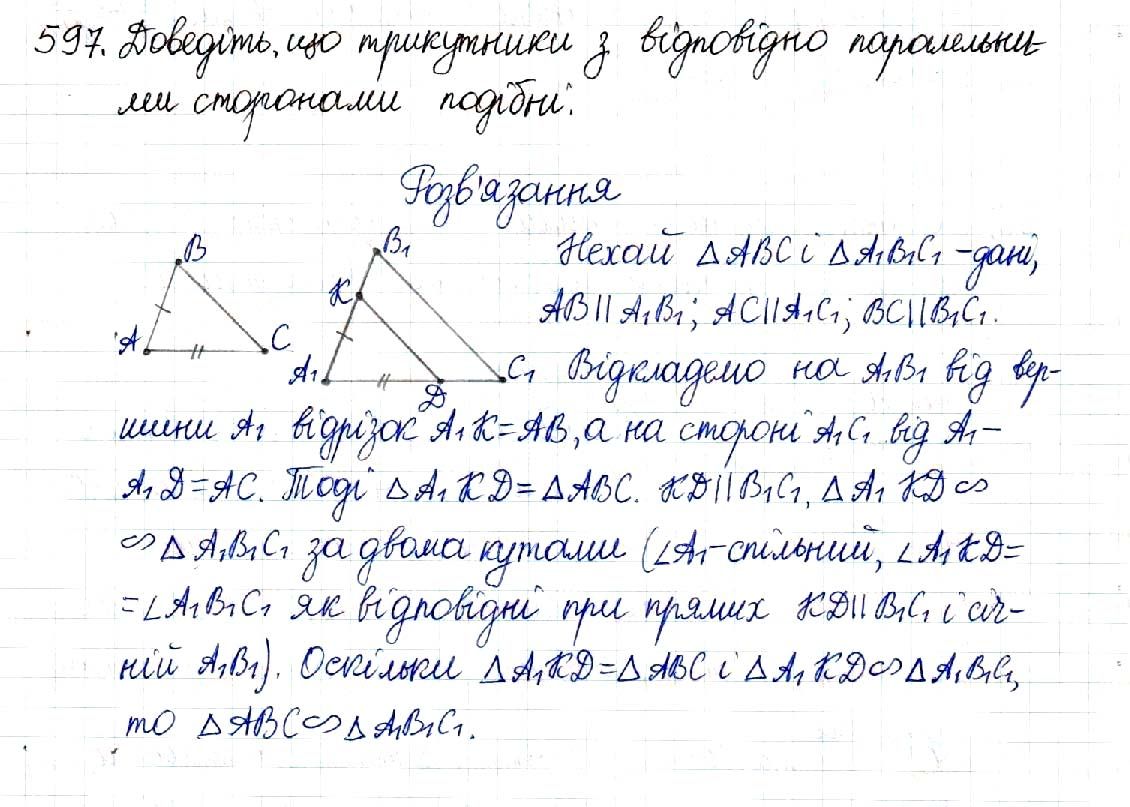 597. Доведіть, що трикутники з відповідно паралельни-
ми сторонами подібні.
Розв'язання
B
A
C
B₁
K
A₁
D
C₁
Нехай △ABC і △A₁B₁C₁ - дані,
AB||A₁B₁; AC||A₁C₁; BC||B₁C₁.
Відкладемо на A₁B₁ від вер-
шини A₁ відрізок A₁K=AB, а на стороні A₁C₁ від A₁ –
A₁D=AC. Тоді △A₁KD=△ABC. KD||B₁C₁, △A₁KD∽
∽△A₁B₁C₁ за двома кутами (∠A₁-спільний, ∠A₁KD=
=∠A₁B₁C₁ як відповідні при прямих KD||B₁C₁ і січ-
ній A₁B₁). Оскільки △A₁KD=△ABC і △A₁KD∽△A₁B₁C₁,
то △ABC∽△A₁B₁C₁.